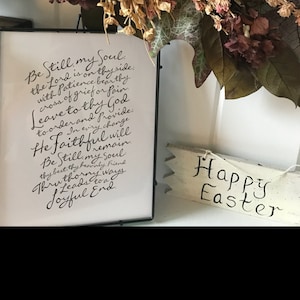 Be Still my Soul
the Lord is on thy side.
with Patience bear thy
cross of grief or Pain
Leave to thy God
to order and Provide
In every change
He Faithful will
remain
Be Still my Soul
thy best thy heavenly friend
Thru thorny ways
Leads to a
Joyful End
Happy
Easter